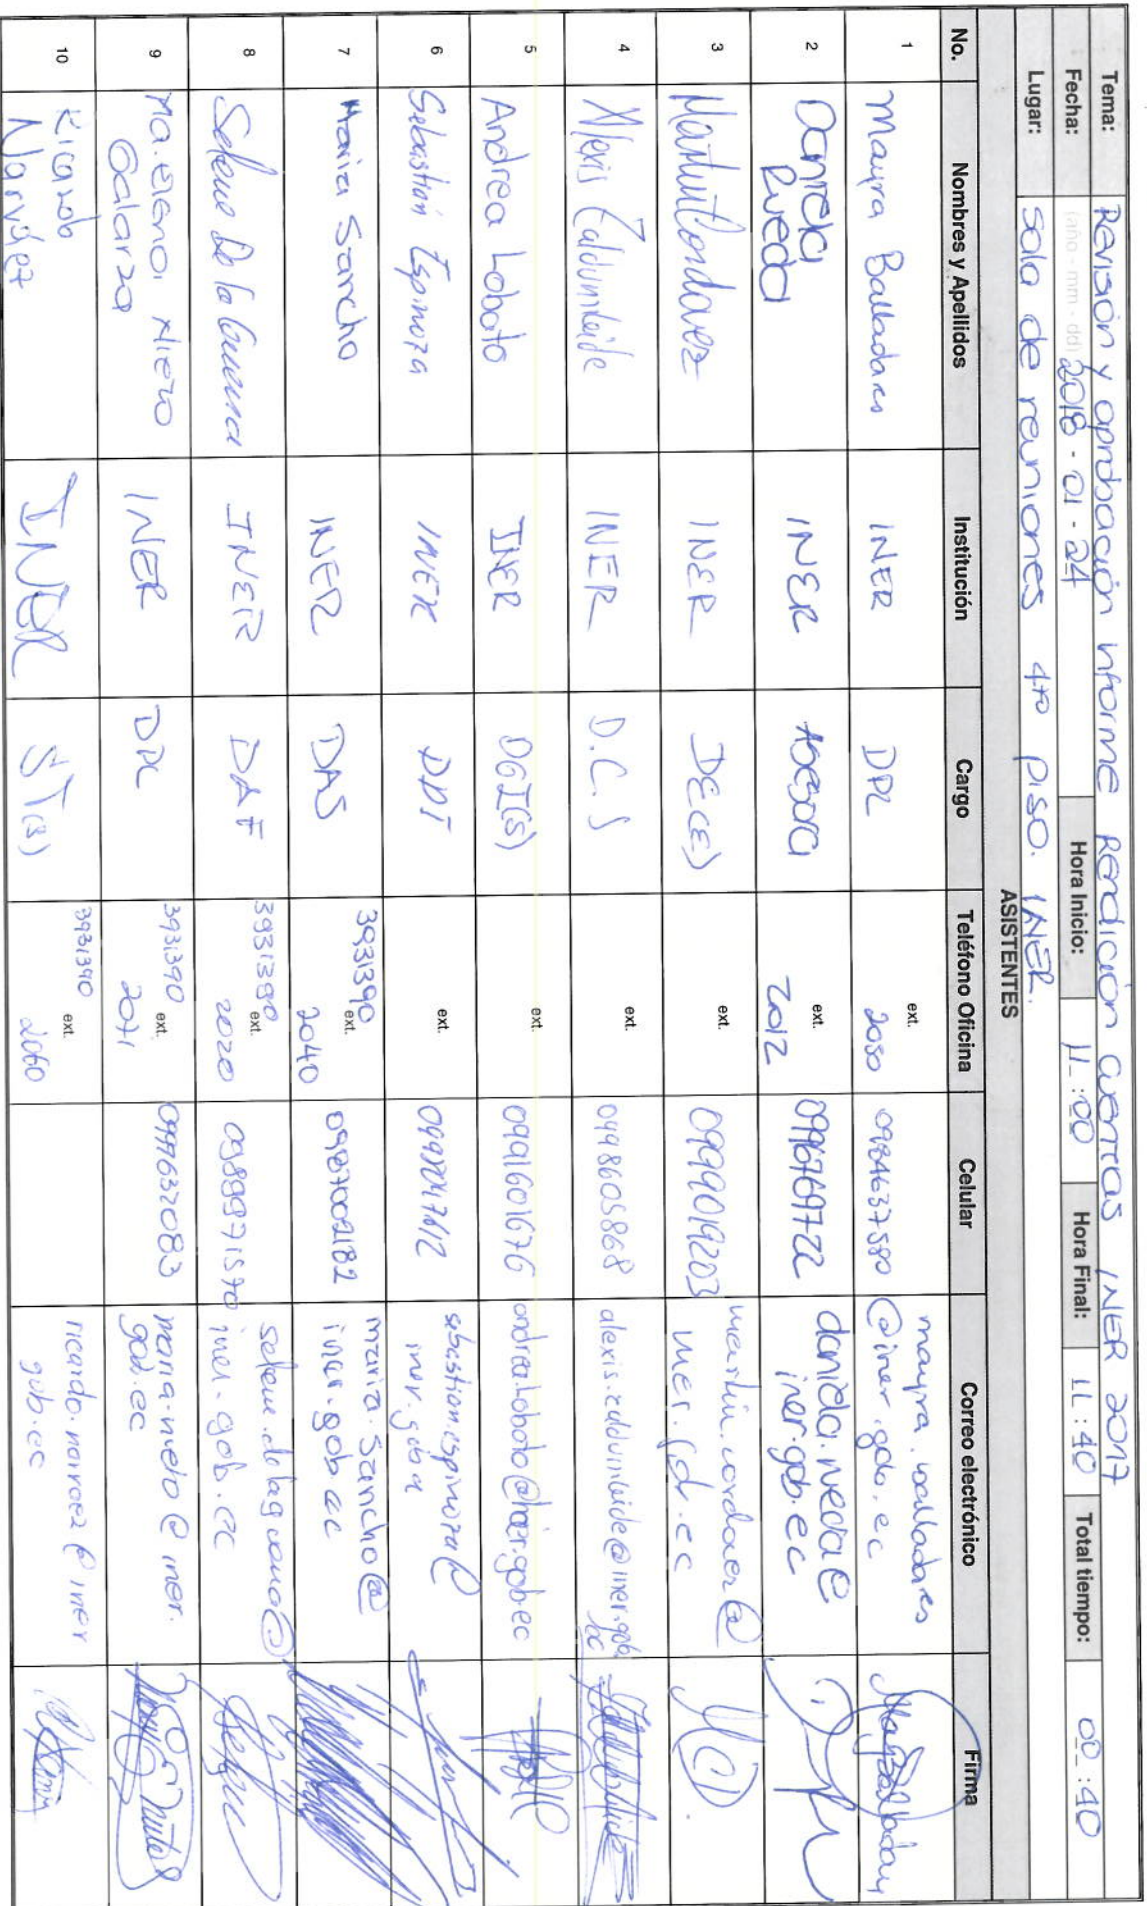 Tema: Revisión y aprobación informe Rendición cuentas INER 2017
Fecha: (año - mm - dd) 2018 - 01 - 24 Hora Inicio: 11 : 00 Hora Final: 11 : 40 Total tiempo: 00 : 40
Lugar: Sala de reuniones 4to piso. INER.
ASISTENTES
No. Nombres y Apellidos Institución Cargo Teléfono Oficina Celular Correo electrónico Firma
1 Mayra Balladares INER DPL ext. 2050 0984637580 mayra.balladares
@iner.gob.ec
2 Daniela INER Asesora ext. 0996769722 daniela.rueda@
Rueda 2012 iner.gob.ec
3 INER ext. 0999019203
iner.gob.ec
4 Alexis Zaldumbide INER D.C.S ext. 0998605868 alexis.zaldumbide@iner.gob.
ec
5 Andrea Lobato INER DGI(S) ext. 0991601676 andrea.lobato@iner.gob.ec
6 Sebastián Espinoza INER ext. sebastian.espinoza@
iner.gob.ec
7 María Sancho INER DAS 3931390 ext. 0987002182 maria.sancho@
2040 iner.gob.ec
8 INER DAF 3931390 ext. 0988971570
2020 iner.gob.ec
9 Ma. Elena Nieto INER 3931390 ext. 0997632083 maria.nieto@iner.
Galarza 2071 gob.ec
10 Ricardo INER 3931390 ext. ricardo.narvaez@iner
Narváez 2060 gob.ec